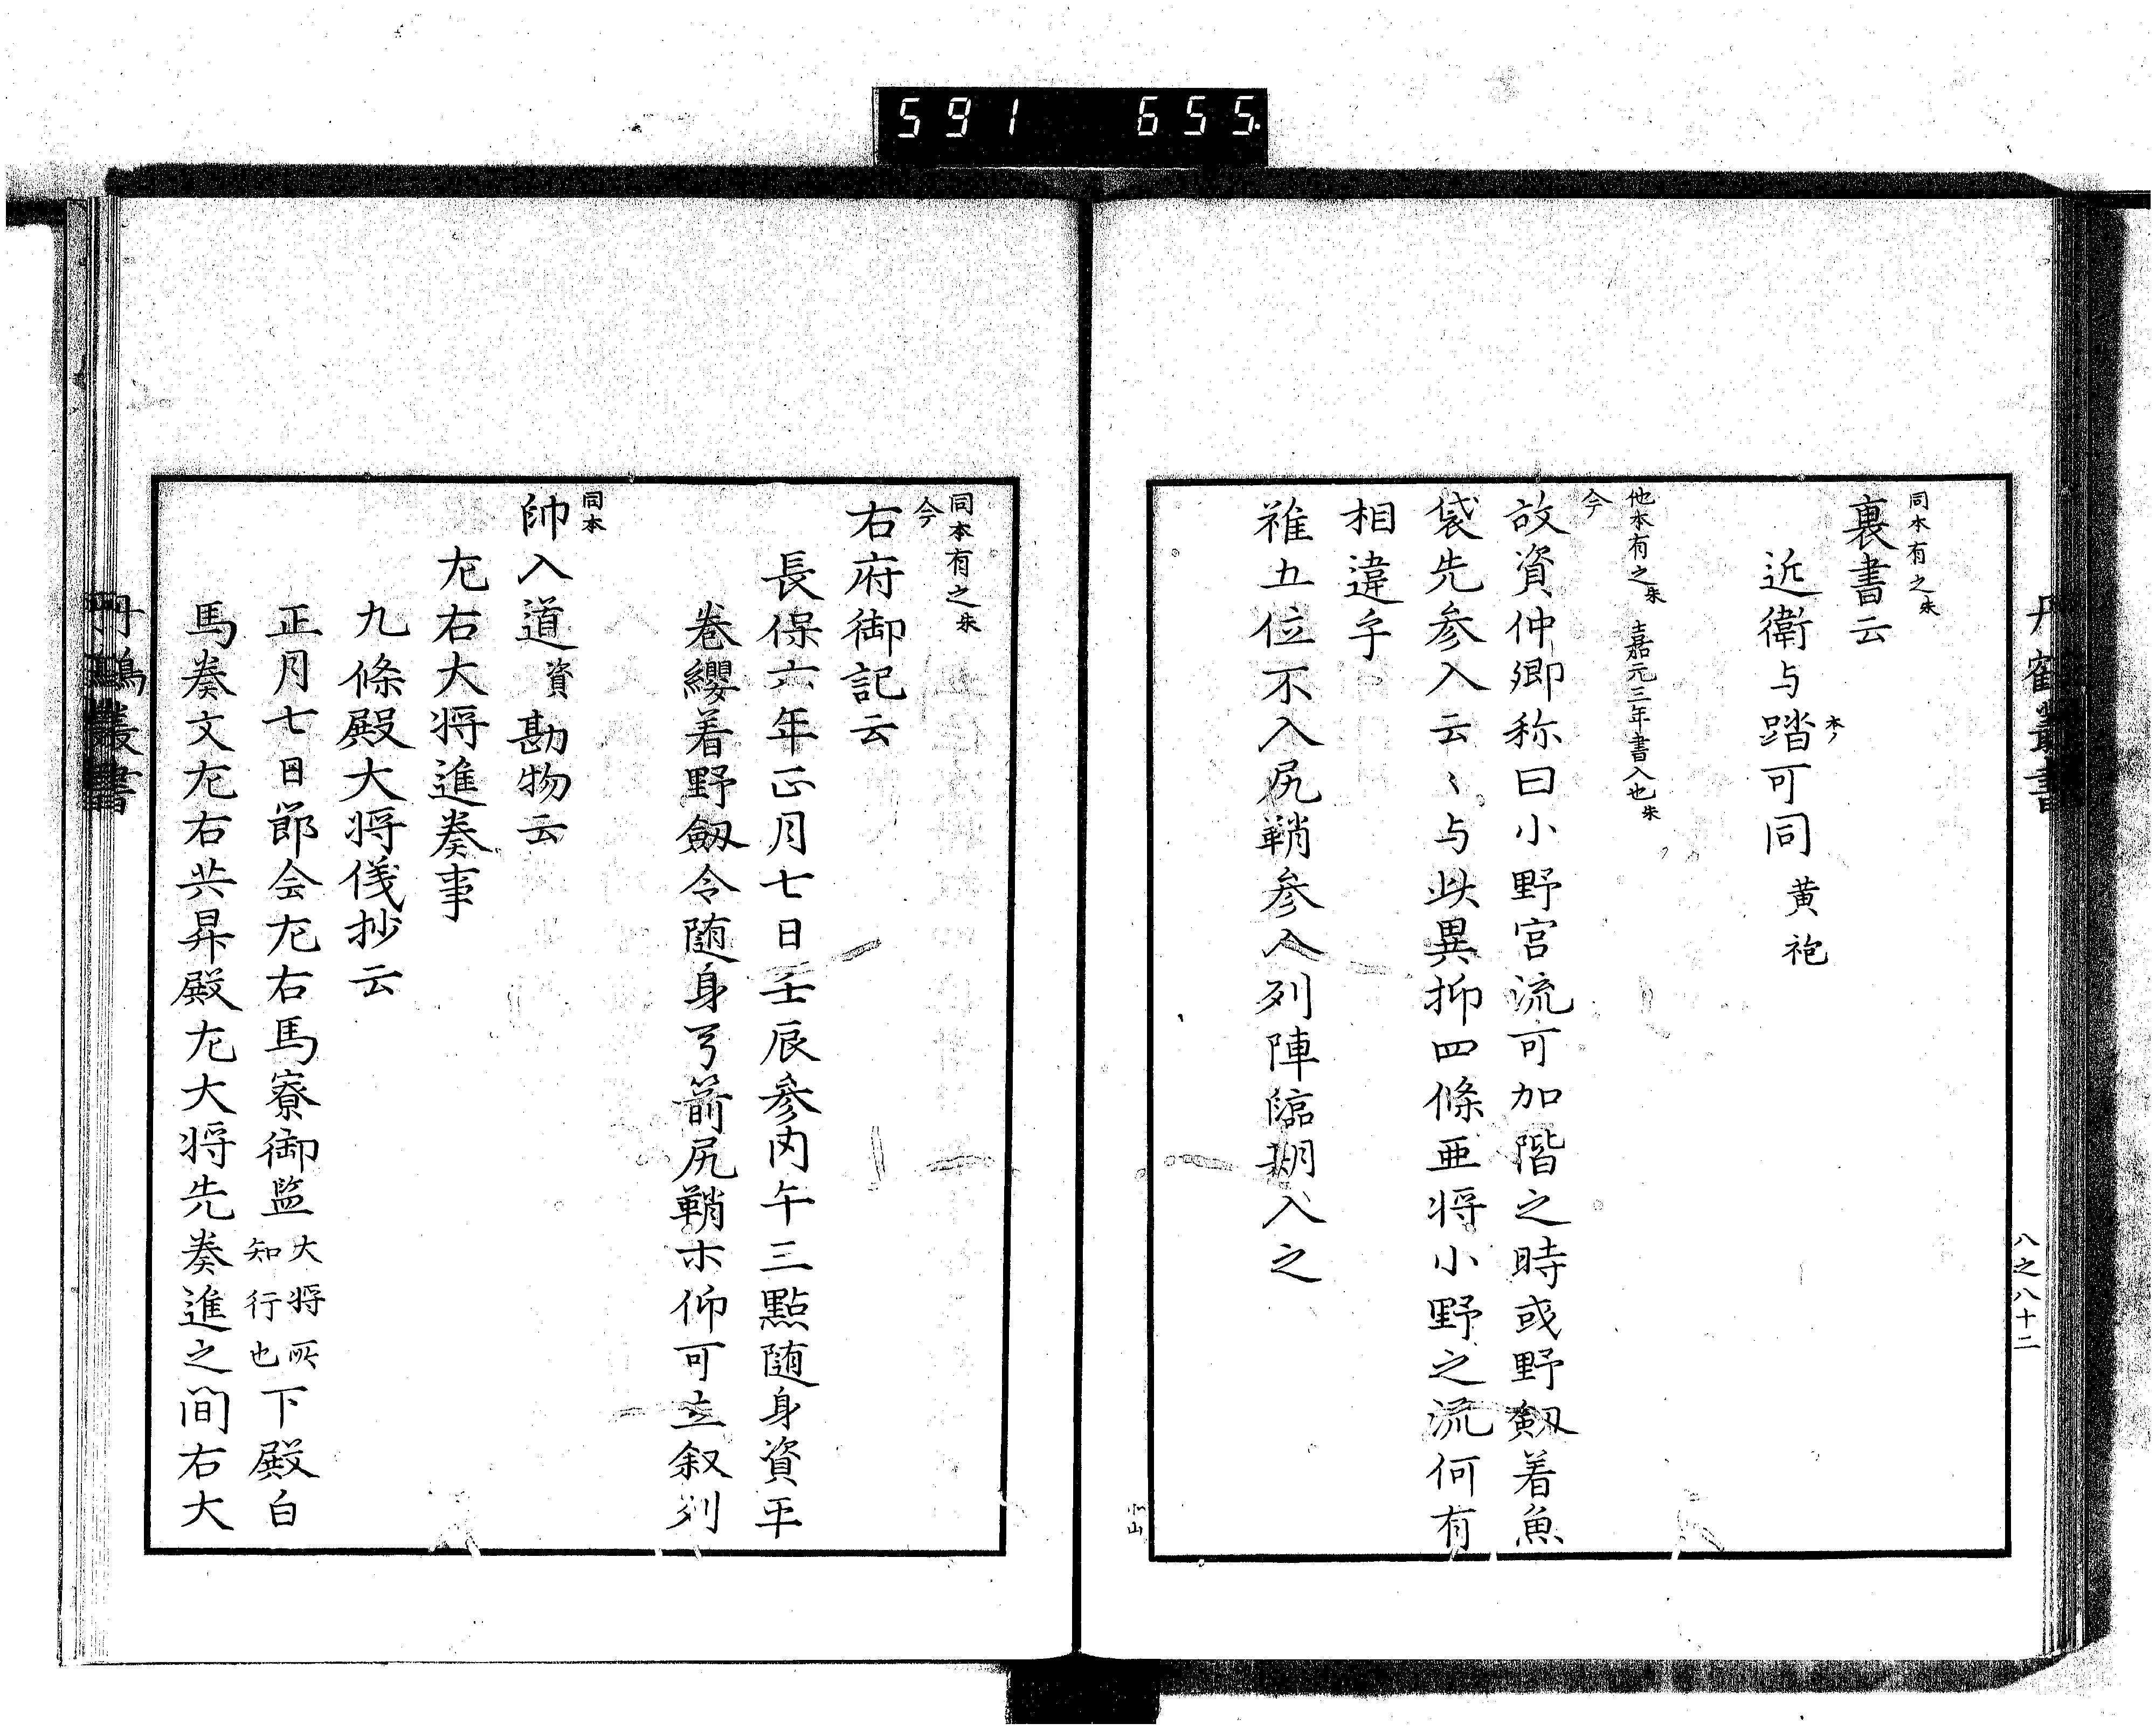 591 655.
丹鶴叢書
八之八十二
同本有之朱
裏書云
近衛与踏可同黄袍
本ノ
他本有之朱 嘉元三年書入也朱
今
故資仲卿称曰小野宮流可加階之時或野劔着魚
袋先参入云〻与此異抑四條亜将小野之流何有
相違乎
雖五位不入尻鞘参入列陣臨期入之
同本有之朱
今
右府御記云
長保六年正月七日壬辰参内午三點随身資平
巻纓着野劔令随身弓箭尻鞘ホ仰可立叙列
同本
帥入道資勘物云
尢右大将進奏事
九條殿大将儀抄云
正月七日節会尢右馬寮御監大将所知行也下殿白
馬奏文尢右共昇殿尢大将先奏進之間右大
丹鶴叢書